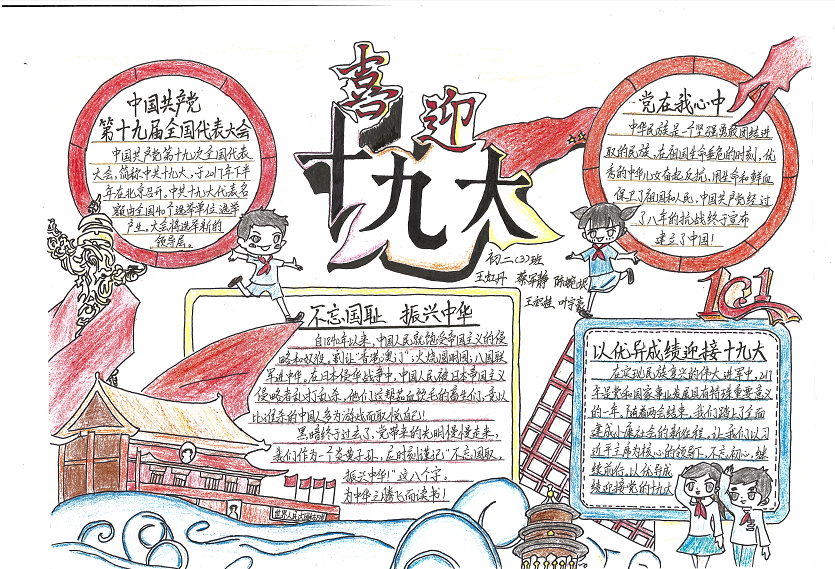 喜迎
十九大
中国共产党
第十九届全国代表大会
中国共产党第十九次全国代表
大会，简称中共十九大，于2017年下半
年在北京召开。中共十九大代表名
额由全国40个选举单位选举
产生。大会将选举新的
领导层。
党在我心中
中华民族是一个坚强勇敢团结进
取的民族，在祖国生命垂危的时刻，优
秀的中华儿女奋起反抗，用生命和鲜血
保卫了祖国和人民。中国共产党经过
了八年的抗战终于宣布
建立了中国！
初二（3）班
王虹丹 蔡军静
王 叶宇豪
不忘国耻 振兴中华
自1840年以来，中国人民就饱受帝国主义的侵
略和奴役，割让“香港澳门”；火烧圆明园；八国联
军进中华。在日本侵华战争中，中国人民被日本帝国主义
侵略者乱打乱杀，他们这帮茹血饮毛的畜生们，竟以
比谁杀的中国人多为游戏而取悦自己！！
黑暗终于过去了，党带来的光明慢慢走来，
我们作为一个炎黄子孙，应时刻谨记“不忘国耻，
振兴中华！”这八个字。
为中华之腾飞而读书！
10.1
以优异成绩迎接十九大
在实现民族复兴的伟大进军中，2017
年是党和国家事业发展具有特殊重要意义
的一年。随着两会结束，我们踏上了全面
建成小康社会的新征程，让我们以习
近平主席为核心的领导下，不忘初心，继
续前行，以优异成
绩迎接党的十九大
世界人民大团结万岁